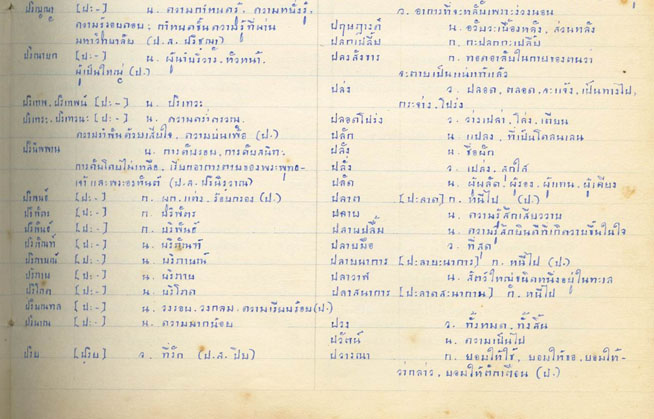 ปริญญา [ป:-] น. ความกำหนดรู้, ความหยั่งรู้,
ความรอบคอบ; กำหนดชั้นความรู้ที่ผ่าน
มหาวิทยาลัย (ป.ส. ปริชฺญา)
ปริณายก [ป:-] น. ผู้นำบริวาร, หัวหน้า,
ผู้เป็นใหญ่ (ป.)
ปริเทพ, ปริเทพน์ [ป:-] น. ปริเทวะ
ปริเทวะ, ปริเทวนะ [ป:-] น. ความคร่ำครวญ,
ความรำพันด้วยเสียใจ, ความบ่นเพ้อ (ป.)
ปรินิพพาน น. การดับรอบ, การดับสนิท;
การดับโดยไม่เหลือ, เรียกอาการตายของพระพุทธ-
เจ้า และพระอรหันต์ (ป.ส. ปรินิรวาณ)
ปริพนธ์ [ป:-] ก. ผูก, แต่ง, ร้อยกรอง (ป.)
[ป:-] ก. ปริพัตร
ปริพันธ์ [ป:-] ก. บริพันธ์
ปริภัณฑ์ [ป:-] น. บริภัณฑ์
ปริภาษณ์ [ป:-] น. บริภาษณ์
ปริภาษ [ป:-] น. บริภาษ
ปริโภค [ป:-] น. บริโภค
ปริมณฑล [ป:-] น. วงรอบ, วงกลม, ความเรียบร้อย (ป.)
ปริมาณ [ป:-] น. ความมากน้อย
ปรีย [ปฺรีย] ว. ที่รัก (ป.ส. ปิย)
ว. อาการที่จะหลับเพราะง่วงนอน
ปฤษฎางค์ น. อวัยวะเบื้องหลัง, ส่วนหลัง
ปลกเปลี้ย ก. กะปลกกะเปลี้ย
ปลงสังขาร ก. ทอดอาลัยในกายของตนว่า
จะตายเป็นแน่แท้แล้ว
ปล่ง ว. ปลอด, ตลอด, จะแจ้ง, เป็นทางไป,
กระจ่าง, โปร่ง
ปลอดโปร่ง ว. ว่างเปล่า, โล่ง, เตียน
ปลัก น. แปลง, ที่เป็นโคลนเลน
ปลั้ง น. ชื่อผัก
ปลั่ง ว. เปล่ง, สุกใส
ปลัด น. ผู้ผลัด, ผู้รอง, ผู้แทน, ผู้เคียง
ปลาต [ปะลาด] ก. หนีไป (ป.)
ปลาบ น. ความรู้สึกเสียววาบ
ปลาบปลื้ม น. ความรู้สึกยินดีที่เกิดวาบขึ้นในใจ
ปลายมือ ว. ที่สุด
ปลายนาการ [ปะลายะนากาน] ก. หนีไป (ป.)
ปลาวาฬ น. สัตว์ใหญ่ชนิดหนึ่งอยู่ในทะเล
ปลาสนาการ [ปะลาดสะนากาน] ก. หนีไป
ปวง ว. ทั้งหมด, ทั้งสิ้น
ปวัตน์ น. ความเป็นไป
ปวารณา ก. ยอมให้ใช้, ยอมให้ขอ, ยอมให้-
ว่ากล่าว, ยอมให้ตักเตือน (ป.)